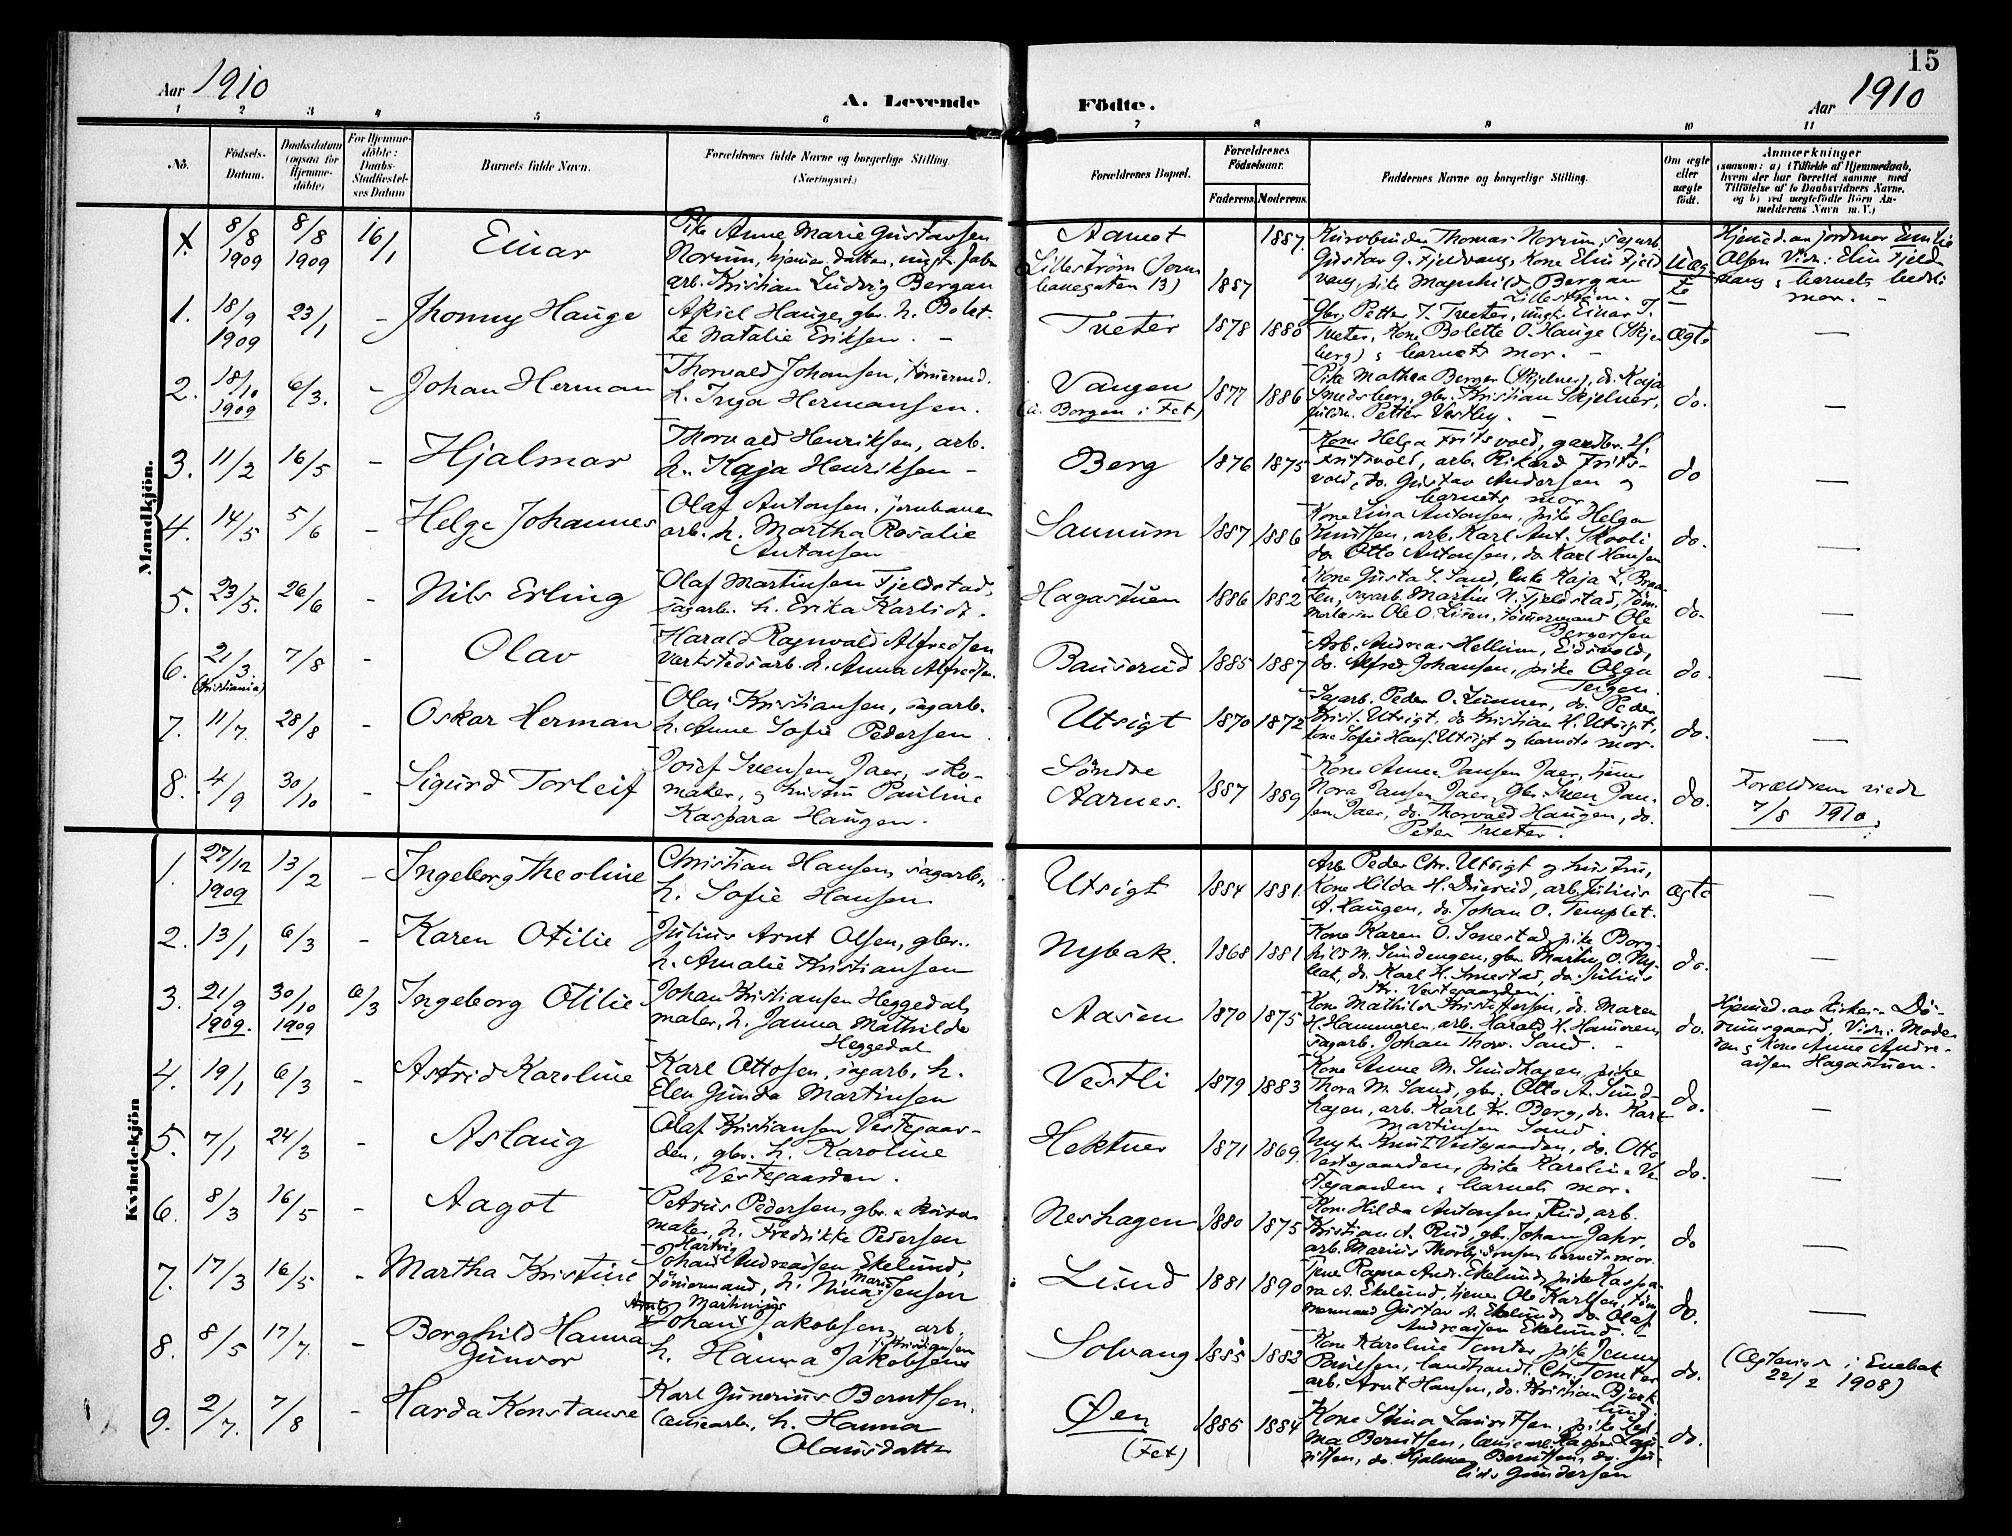 15
Aar 1910
A. Levende Födte.
Aar 1910
1 2 3 4 5 6 7 8 9 10 11
No.
Födsels-
Datum.
Daabsdatum
(ogsaa for
Hjemme-
döbte)
For Hjemme-
döbte:
Daabs-
Stadfæstel-
ses Datum
Barnets fulde Navn.
Forældrenes fulde Navne og borgerlige Stilling.
(Næringsvei.)
Forældrenes Bopæl.
Forældrenes
Födselsaar.
Faderens. Moderens.
Faddernes Navne og borgerlige Stilling.
Om ægte
eller
uægte
födt.
Anmærkninger
(saasom: a) i Tilfælde af Hjemmedaab,
hvem der har forrettet samme med
Tilföielse af to Daabsvidners Navne.
og b) ved uægtefödte Börn An-
melderens Navn m. V.)
Mandkjön.
8/8 1909 8/8 1909 16/1 Einar
Pike Anne Marie Gustavsen
Norum, hjemmev. datter, ungk. fabr
arb. Kristian Ludvig Bergan
Aamot 1887
Lilleström 13) 1887
Kurvbinder Thomas Norum, sagarb.
Gustav G. Fjeldvang, Kone Elin Fjeld
vang, pike Magnhild Bergan
Lilleström.
Uæg
te
Hjemmed. av jordmor Emilie
Olsen Vidn: Elin Fjeld
vang & barnets beds
mor.
1. 18/9 1909 23/1 - Jhonny Hauge
Aksel Hauge, gbr. h. Bolet-
te Natalie Eriksen.
Tveter 1878 1880
Gbr. Petter J. Tveter, ungk. Einar J.
Tveter, Kone Bolette O. Hauge (Skje
berg) & barnets mor.
ægte —
2. 18/10 1909 6/3. - Johan Herman
Thorvald Johansen, tömmerm.
h. Inga Hermansen.
Vangen
(Borgen i Fet)
1877 1886
Pike Mathea Berger (Skjelnes), do. Kaja
Smedsberg, gbr. Kristian Skjelner,
Petter Vestby.
do. —
3. 11/2 16/5 - Hjalmar
Thorvald Henriksen, arb.
h. Kaja Henriksen -
Berg 1876 1875
Kone Helga Fritsvold, gaardbr. H.
Fritsvold, arb. Rikard Frits-
vold, do. Gustav Andersen og
barnets mor
do —
4. 14/5 5/6 - Helge Johannes
Olaf Antonsen, jernbane
arb. h. Martha Rosalie
Antonsen
Saunum 1887 1886
Kone Lina Antonsen, pike Helga
Knutsen, arb. Karl Ant. Skooli
do Otto Antonsen, do. Karl Hansen
do. —
5. 23/5. 26/6 - Nils Erling
Olaf Martinsen Fjeldstad,
sagarb. h. Erika Karlsd.
Hagastuen 1886 1882
Kone Gusta S. Sand, enke Kaja L. Braa
ten, sagarb. Martin N. Fjeldstad, töm.
Ole O. Lisen, tömmermand Ole
Bergersen
do. —
6. 21/3. (Kristiania) 7/8 - Olav
Harald Ragnvald Alfredsen
værkstedsarb. h. Anna Alfredsen.
Bauserud 1885 1887
Arb. Andreas Hellum, Eidsvold,
do. Alfred Johansen, pike Olga
Teigen.
do. —
7. 11/7. 28/8 - Oskar Herman
Olaf Kristiansen, sagarb.
h. Anne Sofie Pedersen.
Utsigt 1870 1872
Sagarb. Peder O. Lunner, do. Peder
Krist. Utsigt, do Kristian H. Utsigt,
kone Sofie Hans. Utsigt og barnets mor.
do. —
8. 4/9 30/10 - Sigurd Torleif
Josef Svensen Jaer, sko-
maker, og hustru Pauline
Kaspara Haugen.
Söndre
Aarnes.
1887 1889
Kone Anna Jansen Jaer,
Nora Jansen Jaer, gbr. Sven Jan-
sen Jaer, do. Thorvald Haugen, do.
Peter Tveter.
do.
Forældrene viede
7/8 1910.
Kvindekjön
1. 27/12 1909 13/2 - Ingeborg Theoline
Christian Hansen, sagarb.
h. Sofie Hansen.
Utsigt 1884 1881.
Arb. Peder Chr. Utsigt og hustru,
Kone Hilda H. Duerud, arb. Julius
A. Haugen, do. Johan O. Templet.
ægte —
2. 13/1 6/3 - Karen Otilie
Julius Arnt Olsen, gbr.
h. Amalie Kristiansen
Nybak. 1868 1881
Kone Karen O. Smestad, pike Borg-
hild M. Sundengen, gbr. Martin O. Ny-
bak, do. Karl H. Smestad, do. Julius
Kr. Vestgaarden
do. —
3. 21/9 1909. 30/10 1909 6/3 Ingeborg Otilie
Johan Kristiansen Heggedal,
maler, h. Janna Mathilde
Heggedal
Aasen 1870 1875
Kone Mathilde Kristoffersen, do. Maren
H. Hammeren, arb. Harald H. Hameren,
sagarb. Johan Thorv. Sand.
do.
Hjemmed. av Kirkes. Dö-
Vidn: Mode
ren & Kone Anne Andre-
assen Hagastuen.
4. 19/1 6/3 - Astrid Karoline
Karl Ottosen, sagarb. h.
Elen Gunda Martinsen
Vestli 1879 1883
Kone Anne M. Sundhagen, pike
Thora M. Sand, gbr. Otto A. Sund-
hagen, arb. Karl Kr. Berg, do. Karl
Martinsen Sand.
do. —
5. 7/1 24/3 - Aslaug
Olaf Kristiansen Vestgaar-
den, gbr. h. Karoline
Vestgaarden.
Hektner 1871 1869.
Ungk. Knut Vestgaarden, do. Otto
Vestgaarden, pike Karoline Ve
stgaarden & barnets mor.
do. —
6. 8/3 16/5 - Aagot
Petrus Pedersen, gbr. &
maker, h. Fredrikke Pedersen
Neshagen 1880 1875
Kone Hilda Antonsen Rud, arb.
Kristian A. Rud, gbr. Johan Jahr,
arb. Marius Thorbjörnsen barnets mor.
do —
7. 17/3 16/5 - Martha Kristine
Hartvig
Johan Andreassen Ekelund,
tömmermand, h. Nina Marie Jensen
Lund 1881 1890
Ragna Andr. Ekelund, pike Kaspa-
ra A. Ekelund, tjener Ole Karlsen, töm
mermand Gustav A. Ekelund, do Olaf
Andreassen Ekelund.
do. —
8. 8/5 17/7. - Borghild Hanna
Gunvor
Arnt Martinius
Johan Jakobsen, arb.
Kristiansen
h. Hanna Jakobsens
Solvang 1885 1883
Kone Karoline Tomter, pike Jenny
Paulsen, landhandl. Chr. Tomter
arb. Arnt Hansen, do. Kristian Bjerk
lund
do.
(Ægteviet i Enebak
22/2 1908)
9. 2/7. 7/8 - Harda Konstanse
Karl Gunerius Berntsen,
h. Hanna
Olausdatter
Öen
(Fet)
1885 1884
Kone Stina Lauritsen, pike Sel-
ma Berntsen, Lau-
ritsen, do. Hjalmar Berntsen, do. Ju-
lius Gundersen
do.